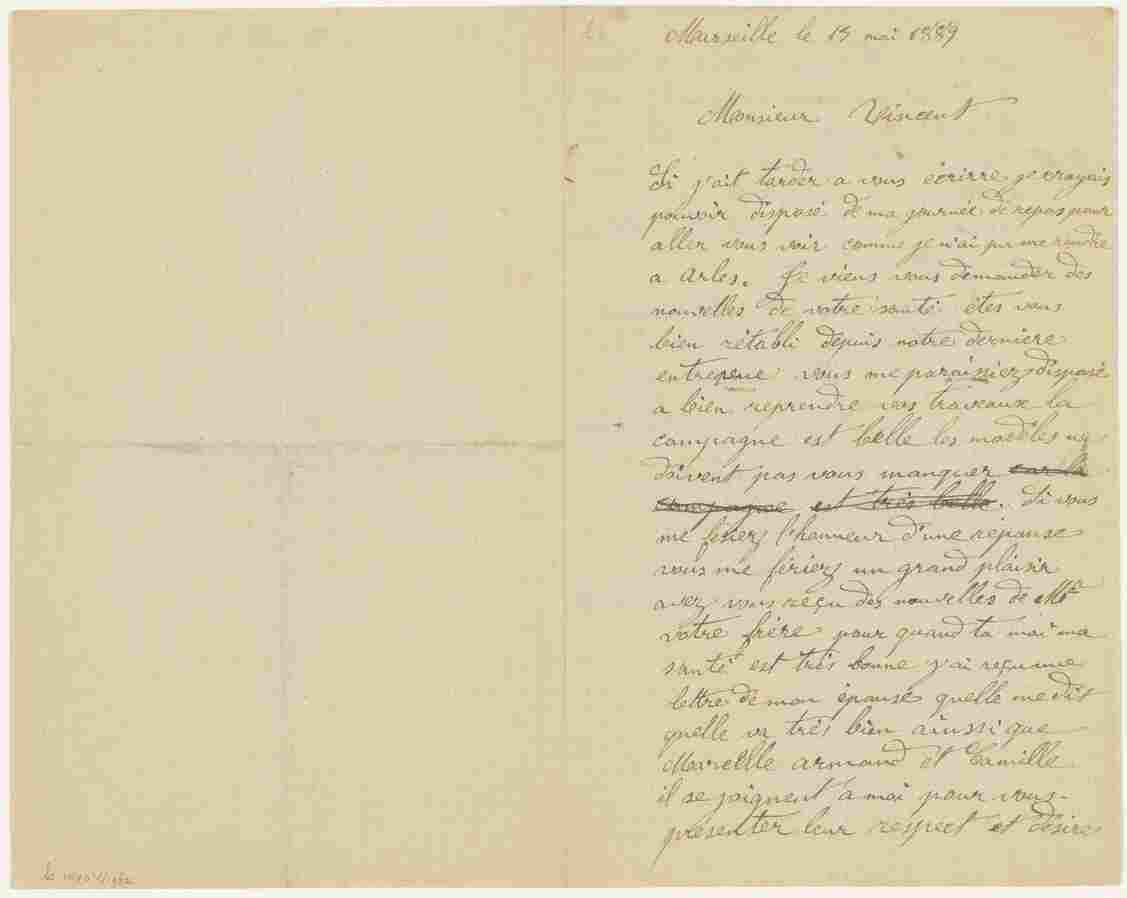 Marseille le 15 mai 1889
Monsieur Vincent
Si j'ait tarder a vous écrirre je croyais
pouvoir disposé de ma journée de repos pour
aller vous voir comme je n'ai pu me rendre
a Arles. Je viens vous demander des
nouvelles de votre santé êtes vous
bien rétabli depuis notre derniere
entrevue vous me paraissiez disposé
a bien reprendre vos traveaux la
campagne est belle les modèles ne
doivent pas vous manquer car la
campagne est très belle. Si vous
me feriez l'honneur d'une réponse
vous me fériez un grand plaisir
avez vous reçu des nouvelles de Mr
votre frère pour quand ta moi ma
santé est très bonne j'ai reçu une
lettre de mon épouse quelle me dit
quelle va très bien ainssi que
Marcelle armand et Camille
il se joignent a moi pour vous
présenter leur respect et désire